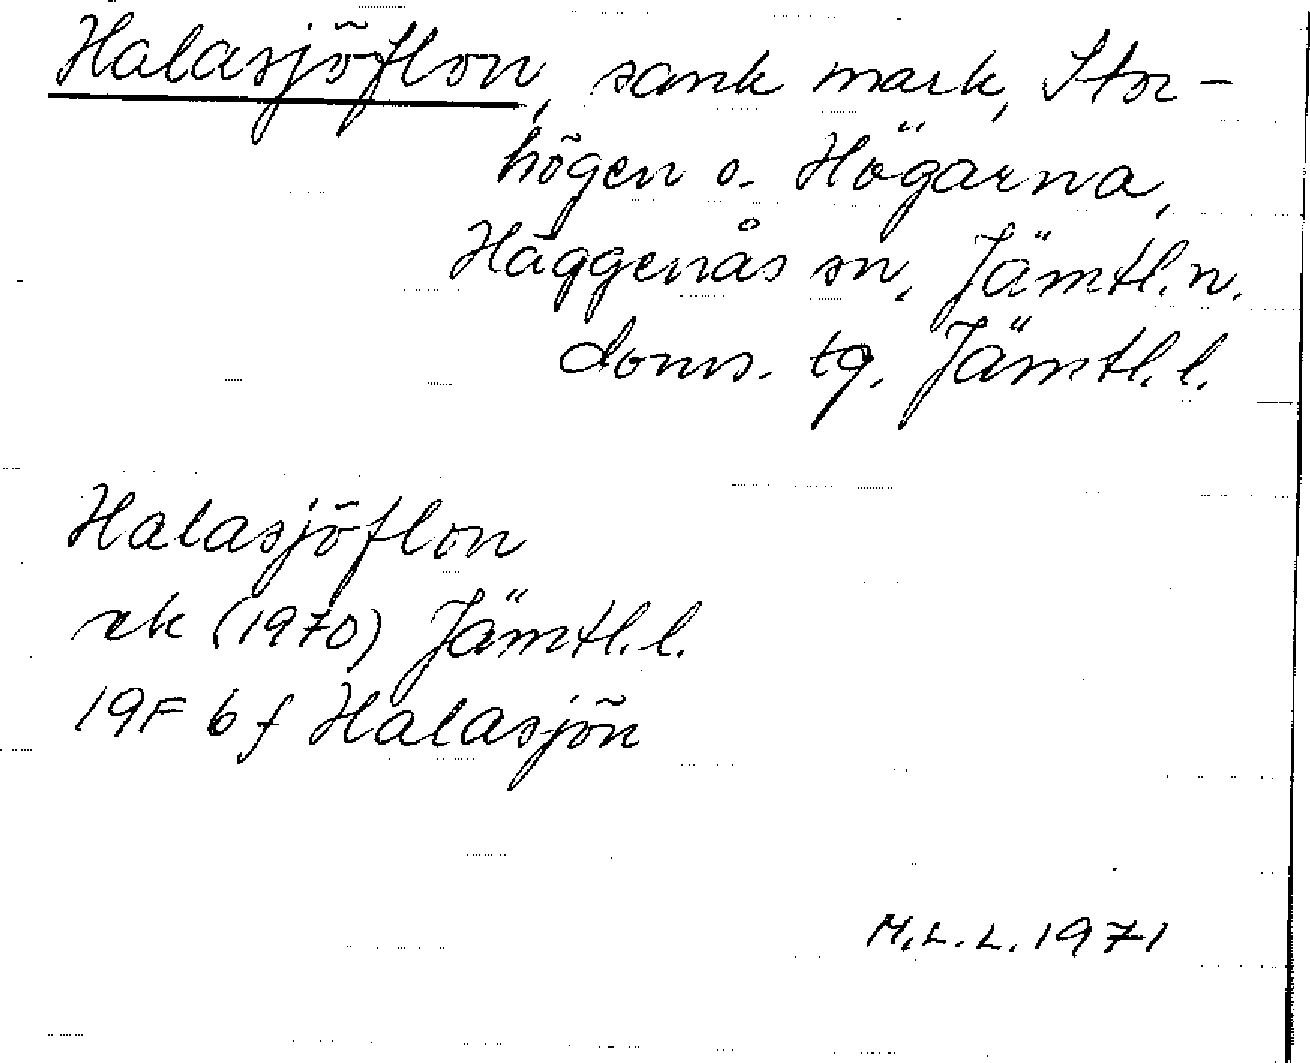 Halasjöflon, sank mark, Stor-
högen o. Högarna,
Häggenås sn, Jämtl. n.
doms. tg. Jämtl. l.
Halasjöflon
rk (1970) Jämtl. l.
19F 6f Halasjön
M.L.L. 1971